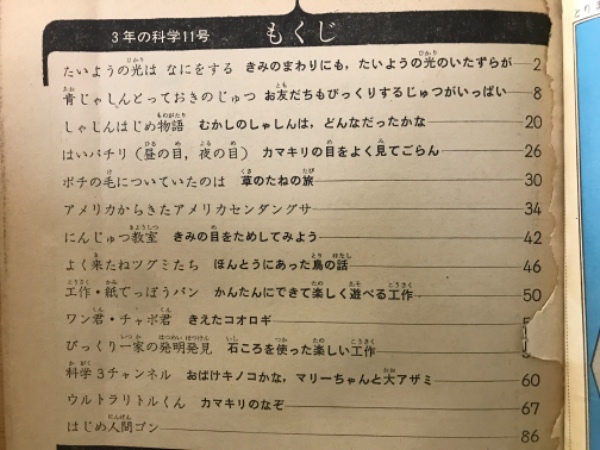 3年の科学11号 もくじ
たいようの光は なにをする きみのまわりにも，たいようの光のいたずらが 2
青じゃしんとっておきのじゅつ お友だちもびっくりするじゅつがいっぱい 8
しゃしんはじめ物語 むかしのしゃしんは，どんなだったかな 20
はいパチリ（昼の目，夜の目） カマキリの目をよく見てごらん 26
ポチの毛についていたのは 草のたねの旅 30
アメリカからきたアメリカセンダングサ 34
にんじゅつ教室 きみの目をためしてみよう 42
よく来たねツグミたち ほんとうにあった鳥の話 46
工作・紙てっぽうパン かんたんにできて楽しく遊べる工作 50
ワン君・チャボ君 きえたコオロギ
びっくり一家の発明発見 石ころを使った楽しい工作
科学3チャンネル おばけキノコかな，マリーちゃんと大アザミ 60
ウルトラリトルくん カマキリのなぞ 67
はじめ人間ゴン 86